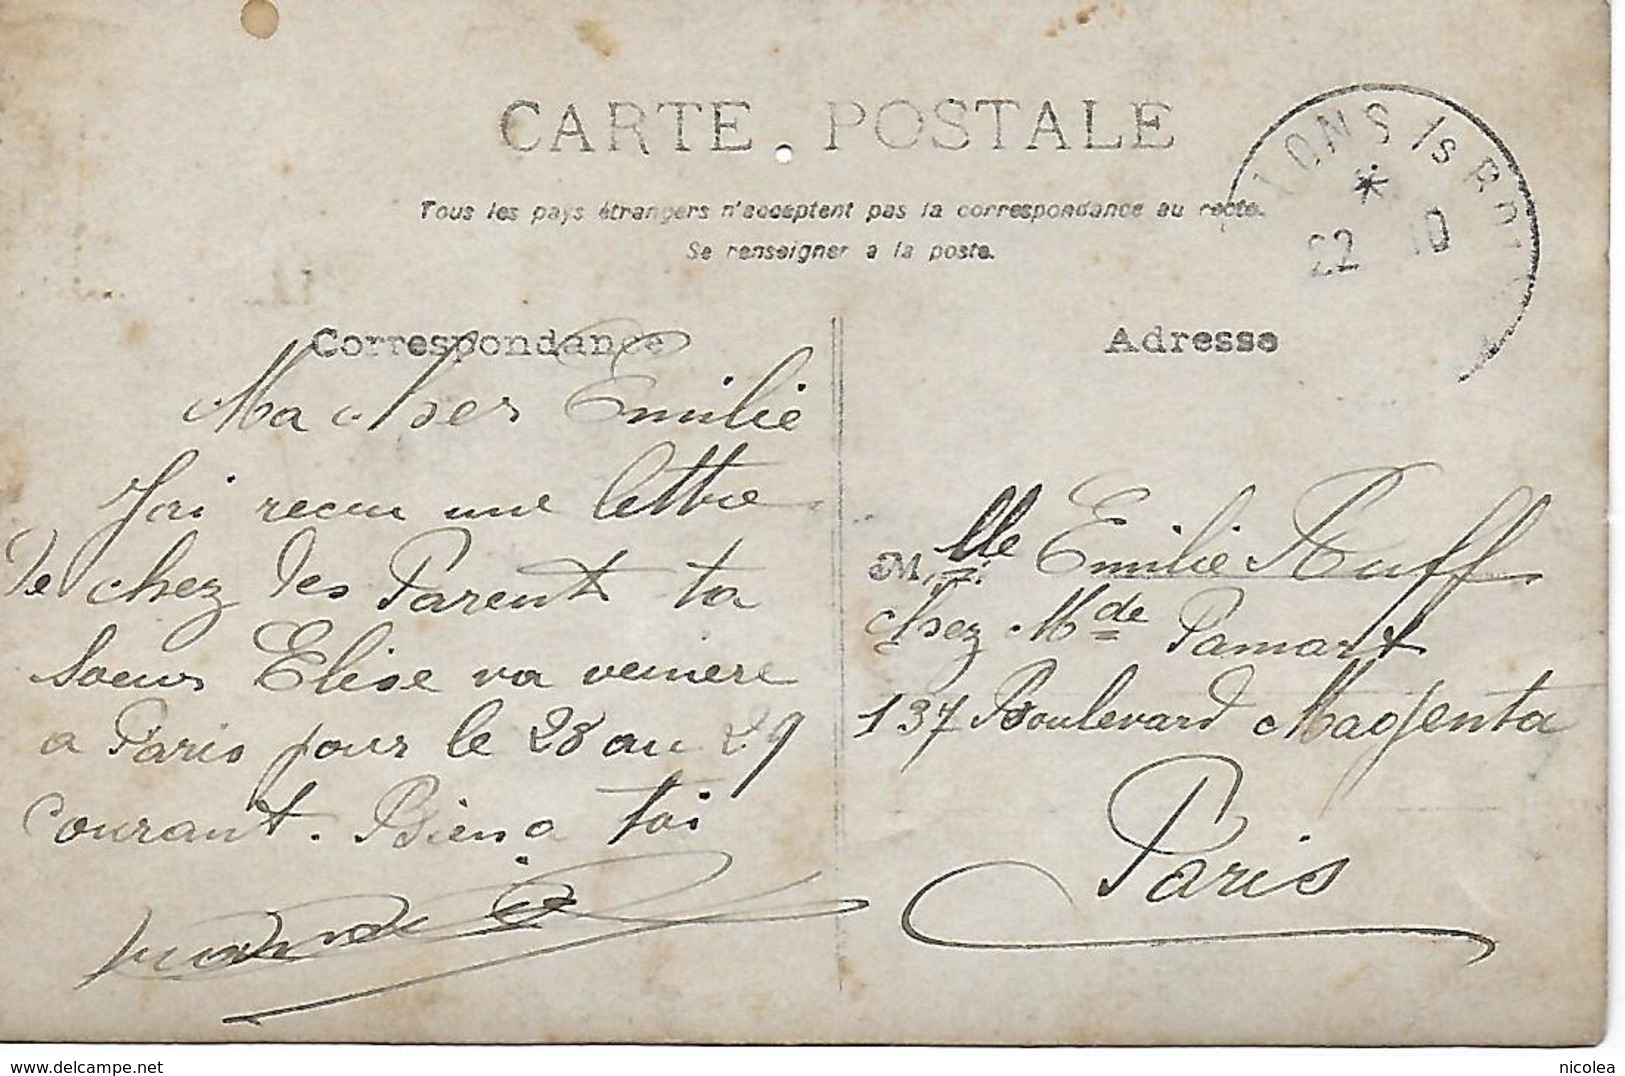 CARTE POSTALE
Tous les pays étrangers n'acceptent pas la correspondance au recto.
Se renseigner a la poste.
Correspondance
Ma cher Emilie
J'ai receu une lettre
de chez les Parent ta
soeur Elise va veniere
a Paris pour le 28 au 29
courant. Bien a toi
Adresse
M.lle Emilie Ruff
chez Mde Pamart
137 Boulevard Magenta
Paris
22 10
nicolea